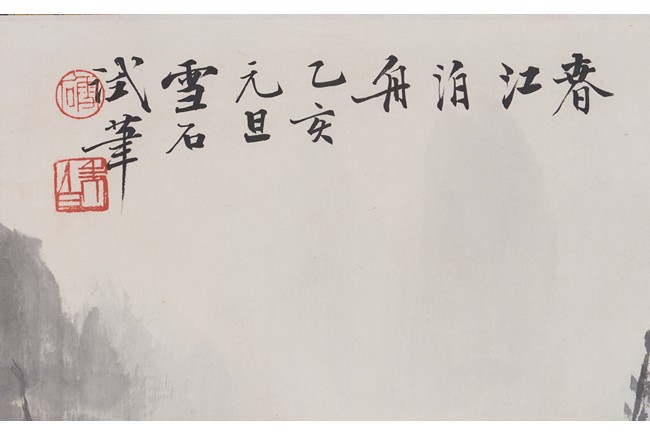 春
江
泊
舟
乙亥
元旦
雪石
试筆